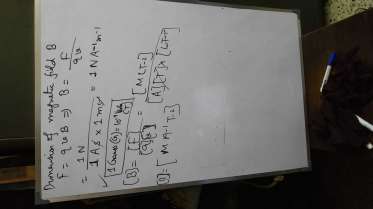 Dimension of magnetic field B
F = qvB ⇒ B = F/qv
= 1N / 1As × 1ms⁻¹ = 1NA⁻¹m⁻¹
√ 1 Gauss (G) = 10⁻⁴
[B] = [F]/[qv] = [MLT⁻²]/[A][T] × [LT⁻¹]
[B] = [MA⁻¹T⁻²]